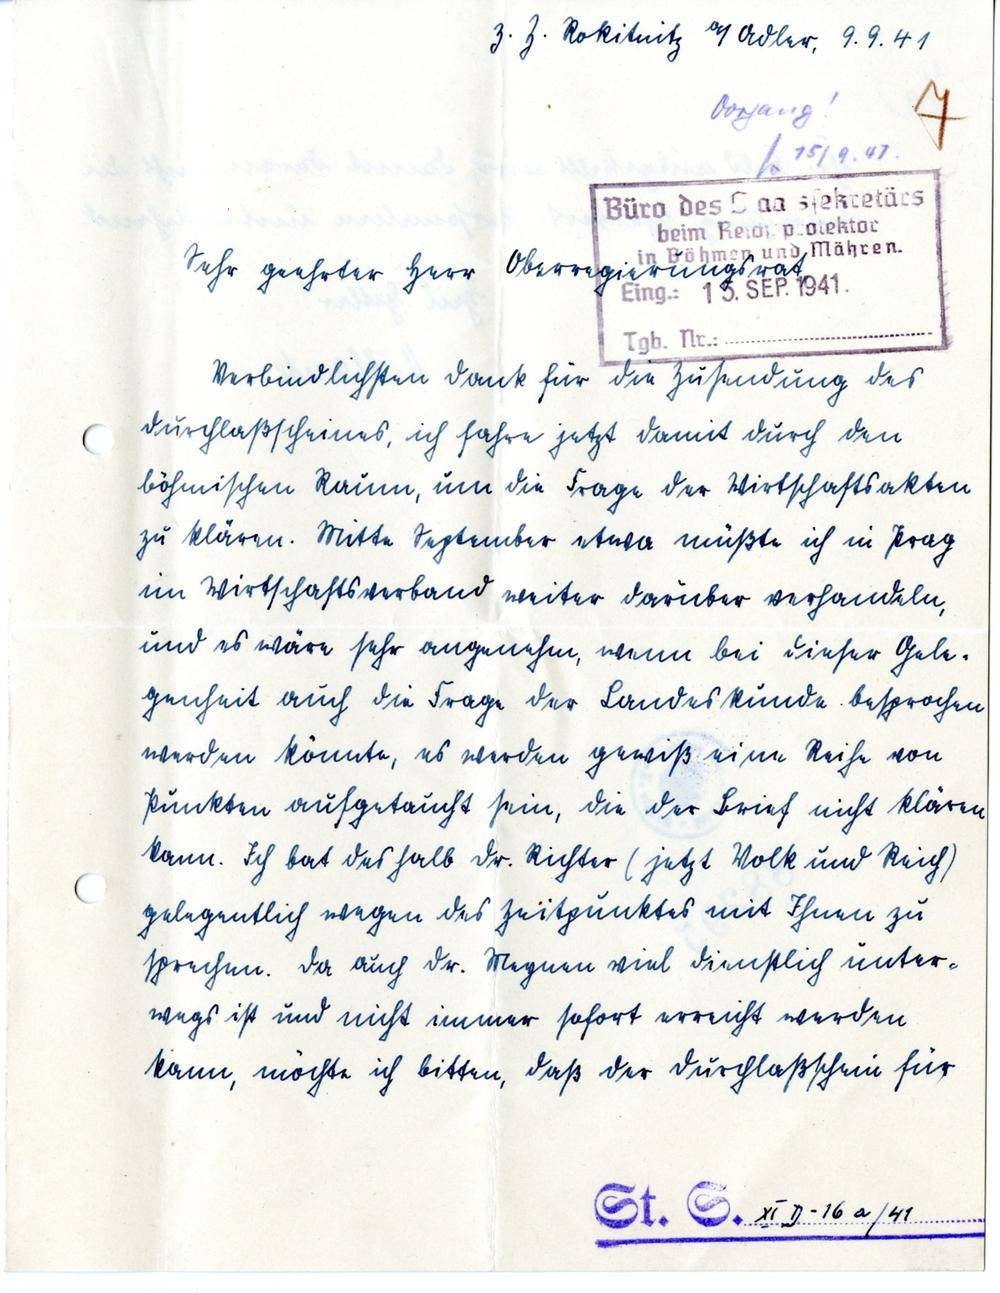 z. Z. Rokitnitz a/ Adler, 9.9.41
7
Vorgang!
15/9.41.
Büro des Staatssekretärs
beim Reichsprotektor
in Böhmen und Mähren.
Eing.: 15. SEP. 1941.
Tgb. Nr.:
Sehr geehrter Herr Oberregierungsrat
Verbindlichsten Dank für die Zusendung des
Durchlaßscheines, ich fahre jetzt damit durch den
böhmischen Raum, um die Frage der Wirtschaftsakten
zu klären. Mitte September etwa müßte ich in Prag
im Wirtschaftsverband weiter darüber verhandeln,
und es wäre sehr angenehm, wenn bei dieser Gele-
genheit auch die Frage der Landeskunde besprochen
werden könnte, es werden gewiß eine Reihe von
Punkten aufgetaucht sein, die der Brief nicht klären
kann. Ich bat deshalb Dr. Richter (jetzt Volk und Reich)
gelegentlich wegen des Zeitpunktes mit Ihnen zu
sprechen. Da auch Dr. Meynen viel dienstlich unter-
wegs ist und nicht immer sofort erreicht werden
kann, möchte ich bitten, daß der Durchlaßschein für
St. S. XI D-16 a/41